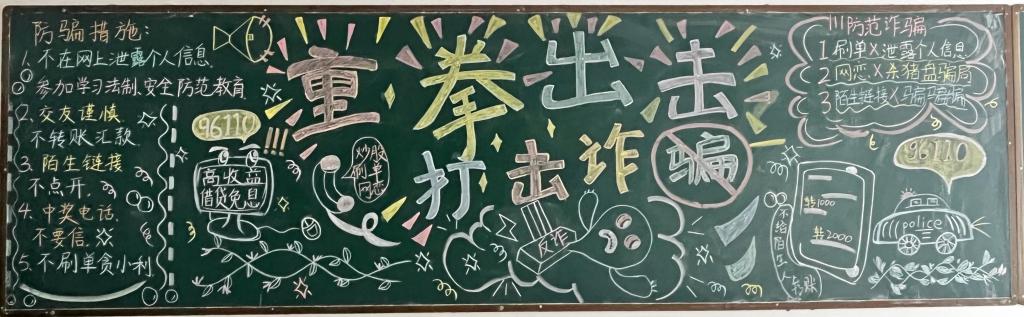 防骗措施:
1.不在网上泄露个人信息
参加学习法制,安全防范教育
2.交友谨慎
不转账汇款
3.陌生链接
不点开.
4.中奖电话.
不要信.
5.不刷单贪小利
96110!!!
高收益
借贷免息
炒股
刷单
网恋
重拳出击
打击诈骗
反诈
!!!防范诈骗
1刷单X泄露个人信息
2网恋X杀猪盘骗局
3陌生链接X
96110
转1000
转2000
不给陌生人转账
police